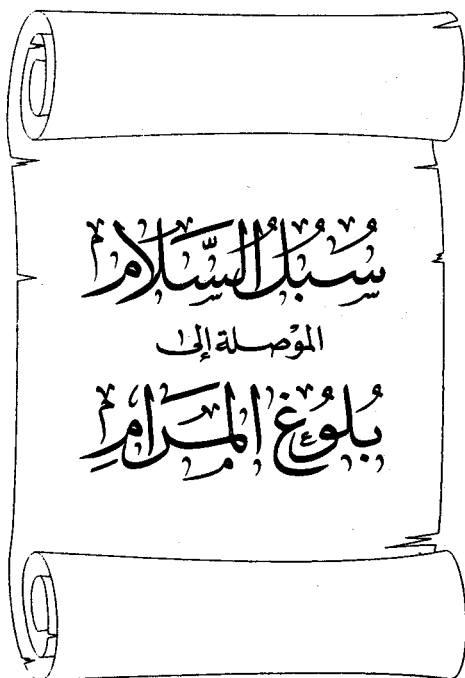 سُبُلُ السَّلَامِ
الموْصلة إلى
بُلُوغِ المَرَامِ